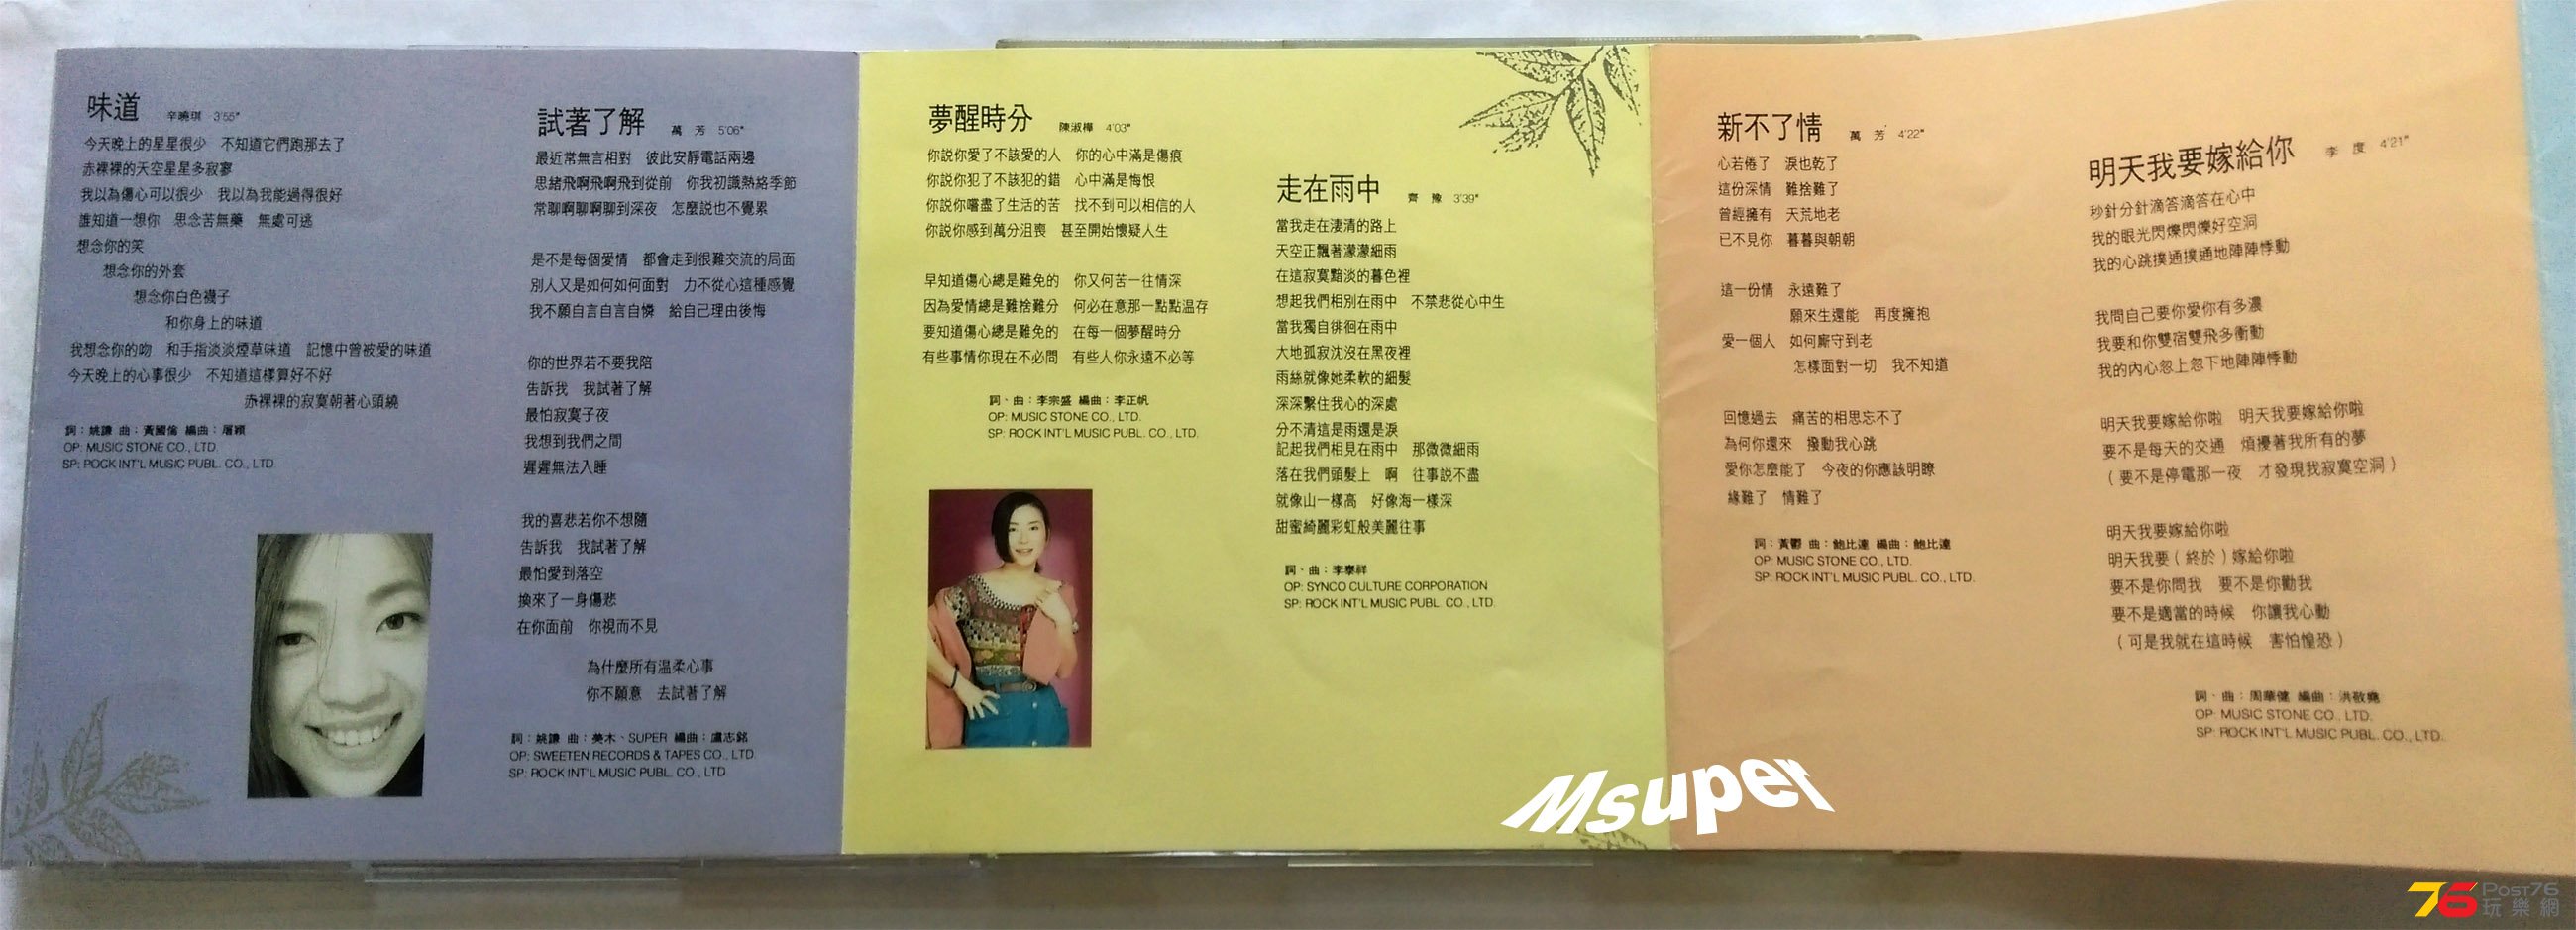 味道 辛曉琪 3'55"
今天晚上的星星很少 不知道它們跑那去了
赤裸裸的天空星星多寂寥
我以為傷心可以很少 我以為我能過得很好
誰知道一想你 思念苦無藥 無處可逃
想念你的笑
想念你的外套
想念你白色襪子
和你身上的味道
我想念你的吻 和手指淡淡煙草味道 記憶中曾被愛的味道
今天晚上的心事很少 不知道這樣算好不好
赤裸裸的寂寞朝著心頭繞
詞：姚謙 曲：黃國倫 編曲：屠穎
OP: MUSIC STONE CO., LTD.
SP: ROCK INT'L MUSIC PUBL. CO., LTD.
試著了解 萬 芳 5'06"
最近常無言相對 彼此安靜電話兩邊
思緒飛啊飛啊飛到從前 你我初識熱絡季節
常聊啊聊啊聊到深夜 怎麼說也不覺累
是不是每個愛情 都會走到很難交流的局面
別人又是如何如何面對 力不從心這種感覺
我不願自言自言自憐 給自己理由後悔
你的世界若不要我陪
告訴我 我試著了解
最怕寂寞子夜
我想到我們之間
遲遲無法入睡
我的喜悲若你不想隨
告訴我 我試著了解
最怕愛到落空
換來了一身傷悲
在你面前 你視而不見
為什麼所有溫柔心事
你不願意 去試著了解
詞：姚謙 曲：美木、SUPER 編曲：盧志銘
OP: SWEETEN RECORDS & TAPES CO., LTD.
SP: ROCK INT'L MUSIC PUBL. CO., LTD.
夢醒時分 陳淑樺 4'03"
你說你愛了不該愛的人 你的心中滿是傷痕
你說你犯了不該犯的錯 心中滿是悔恨
你說你嚐盡了生活的苦 找不到可以相信的人
你說你感到萬分沮喪 甚至開始懷疑人生
早知道傷心總是難免的 你又何苦一往情深
因為愛情總是難捨難分 何必在意那一點點温存
要知道傷心總是難免的 在每一個夢醒時分
有些事情你現在不必問 有些人你永遠不必等
詞、曲：李宗盛 編曲：李正帆
OP: MUSIC STONE CO., LTD.
SP: ROCK INT'L MUSIC PUBL. CO., LTD.
走在雨中 齊 豫 3'39"
當我走在淒清的路上
天空正飄著濛濛細雨
在這寂寞黯淡的暮色裡
想起我們相別在雨中 不禁悲從心中生
當我獨自徘徊在雨中
大地孤寂沈沒在黑夜裡
雨絲就像她柔軟的細髮
深深繫住我心的深處
分不清這是雨還是淚
記起我們相見在雨中 那微微細雨
落在我們頭髮上 啊 往事說不盡
就像山一樣高 好像海一樣深
甜蜜綺麗彩虹般美麗往事
詞、曲：李泰祥
OP: SYNCO CULTURE CORPORATION
SP: ROCK INT'L MUSIC PUBL. CO., LTD.
新不了情 萬 芳 4'22"
心若倦了 淚也乾了
這份深情 難捨難了
曾經擁有 天荒地老
已不見你 暮暮與朝朝
這一份情 永遠難了
願來生還能 再度擁抱
愛一個人 如何廝守到老
怎樣面對一切 我不知道
回憶過去 痛苦的相思忘不了
為何你還來 撥動我心跳
愛你怎麼能了 今夜的你應該明瞭
緣難了 情難了
詞：黃鬱 曲：鮑比達 編曲：鮑比達
OP: MUSIC STONE CO., LTD.
SP: ROCK INT'L MUSIC PUBL. CO., LTD.
明天我要嫁給你 李 度 4'21"
秒針分針滴答滴答在心中
我的眼光閃爍閃爍好空洞
我的心跳撲通撲通地陣陣悸動
我問自己要你愛你有多濃
我要和你雙宿雙飛多衝動
我的內心忽上忽下地陣陣悸動
明天我要嫁給你啦 明天我要嫁給你啦
要不是每天的交通 煩擾著我所有的夢
（要不是停電那一夜 才發現我寂寞空洞）
明天我要嫁給你啦
明天我要（終於）嫁給你啦
要不是你問我 要不是你勸我
要不是適當的時候 你讓我心動
（可是我就在這時候 害怕惶恐）
詞、曲：周華健 編曲：洪敬堯
OP: MUSIC STONE CO., LTD.
SP: ROCK INT'L MUSIC PUBL. CO., LTD.
Msuper
76 Post76
玩樂網